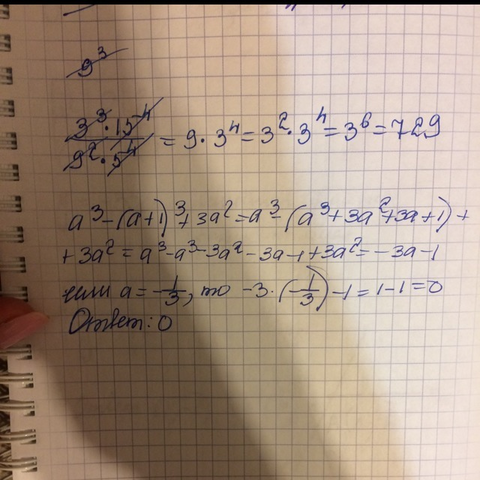 9³
3³·15⁴ / 9²·5⁴ = 9·3⁴ = 3²·3⁴ = 3⁶ = 729
a³-(a+1)³+3a² = a³-(a³+3a²+3a+1)+
+3a² = a³-a³-3a²-3a-1+3a² = -3a-1
если a = -1/3, то -3·(-1/3)-1 = 1-1 = 0
Ответ: 0